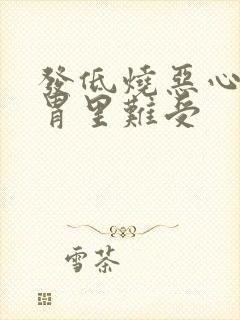 發低燒惡心
胃里難受
雪茶